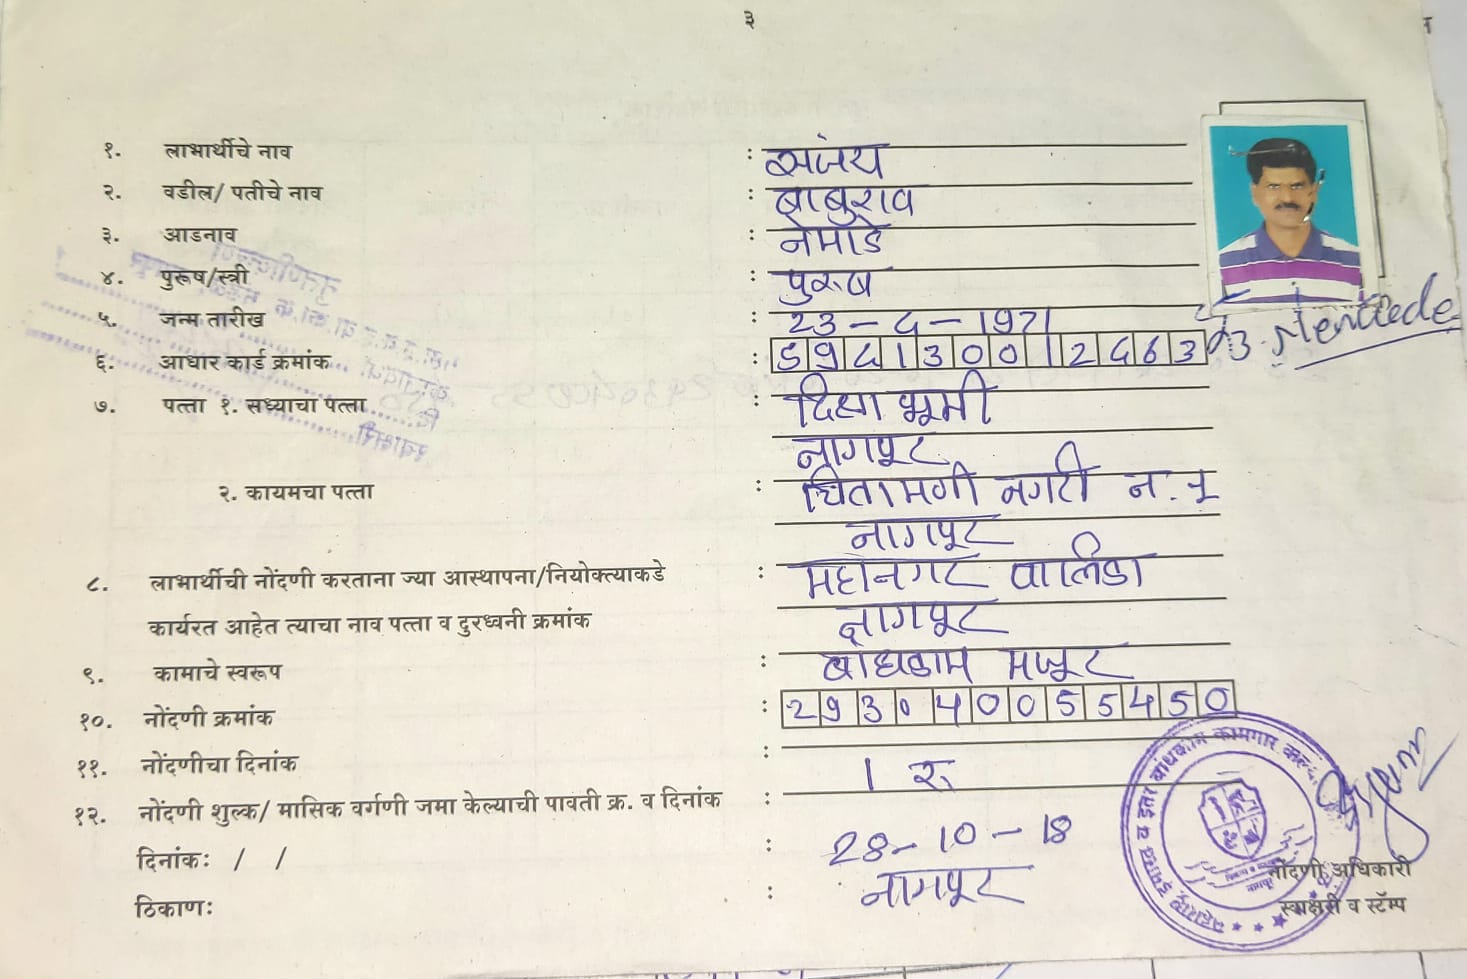 ३
१. लाभार्थीचे नाव : संजय
२. वडील/ पतीचे नाव : बाबुराव
३. आडनाव : नेमाडे
४. पुरूष/स्त्री : पुरुष
५. जन्म तारीख : 23-5-1971
६. आधार कार्ड क्रमांक :
७. पत्ता १. सध्याचा पत्ता : दिक्षा भूमी
नागपूर
२. कायमचा पत्ता : चिंतामणी नगरी न. 1
नागपूर
८. लाभार्थीची नोंदणी करताना ज्या आस्थापना/नियोक्त्याकडे : महानगर पालिका
कार्यरत आहेत त्याचा नाव पत्ता व दुरध्वनी क्रमांक नागपूर
९. कामाचे स्वरूप : बांधकाम मजूर
१०. नोंदणी क्रमांक :
११. नोंदणीचा दिनांक :
1 रु
१२. नोंदणी शुल्क/ मासिक वर्गणी जमा केल्याची पावती क्र. व दिनांक :
दिनांकः / / : 28-10-18
ठिकाणः : नागपूर
नोंदणी अधिकारी
स्वाक्षरी व स्टॅम्प